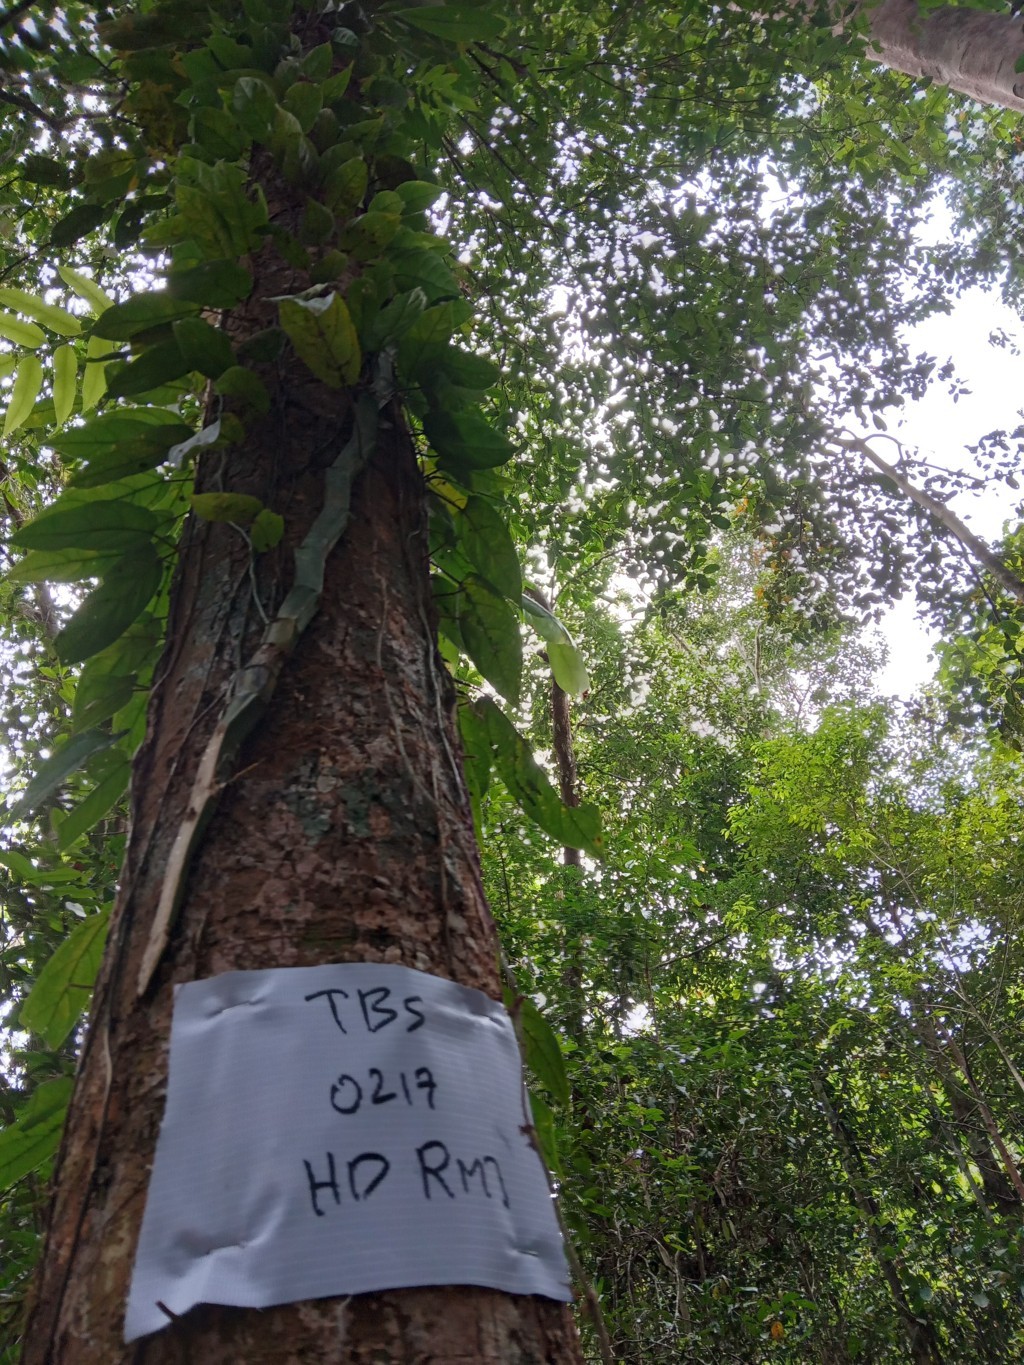 TBS
0217
HD RM7